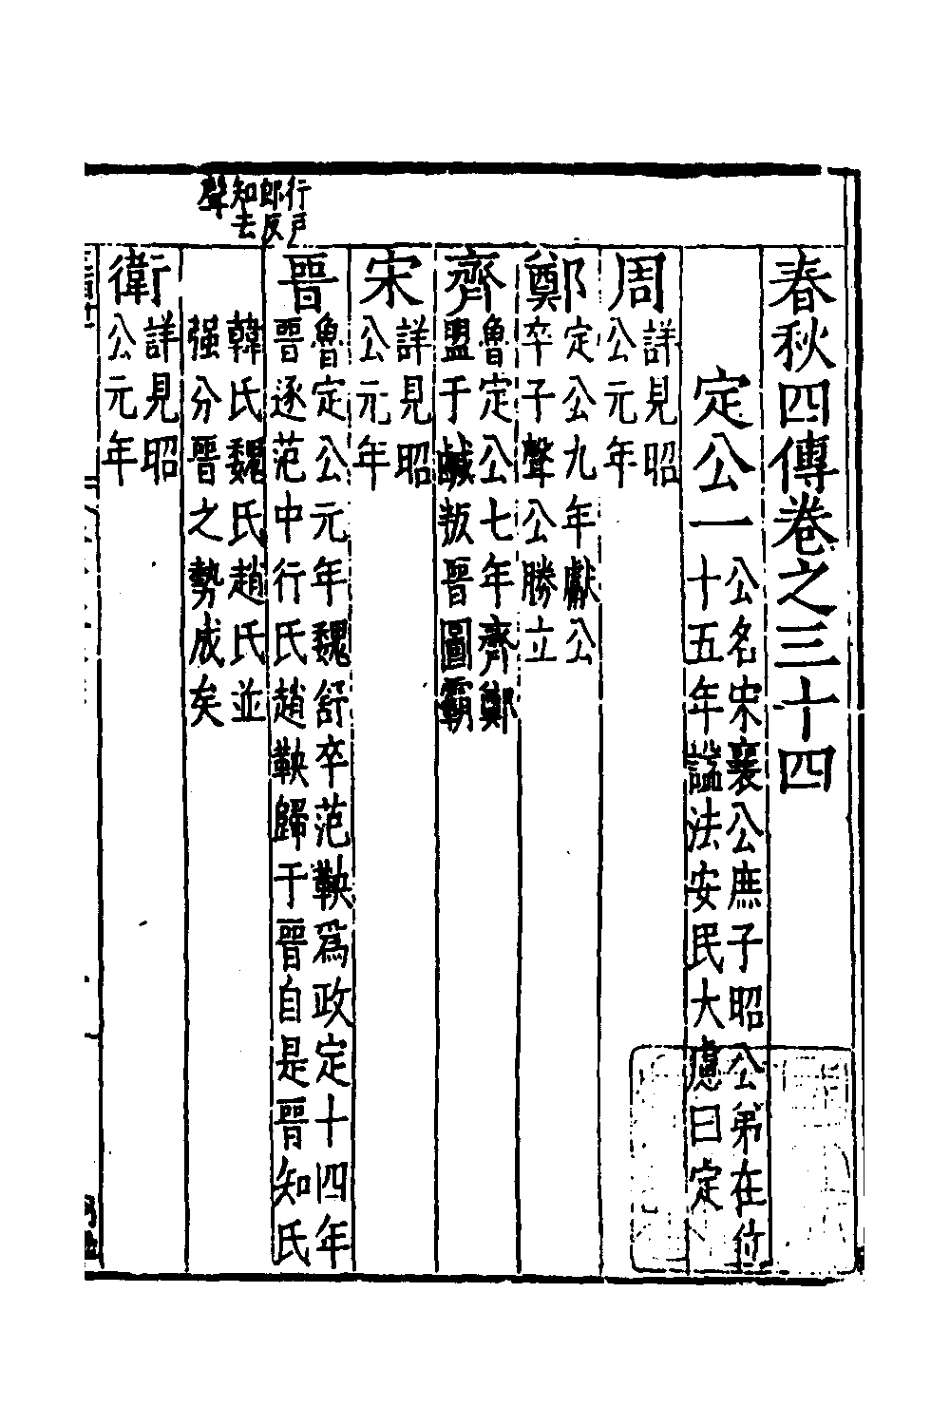 春秋四傳卷之三十四
定公一
公名宋襄公庶子昭公弟在位
十五年諡法安民大慮曰定
周
詳見昭
公元年
鄭
定公九年獻公
卒子聲公勝立
齊
魯定公七年齊鄭
盟于鹹叛晉圖霸
宋
詳見昭
公元年
行戶
郎反
知去
聲
晉
魯定公元年魏舒卒范鞅爲政定十四年
晉逐范中行氏趙鞅歸于晉自是晉知氏
韓氏魏氏趙氏並
强分晉之勢成矣
衛
詳見昭
公元年